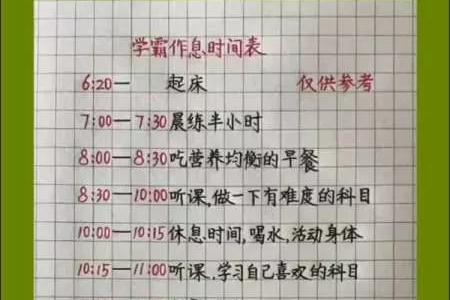 学霸作息时间表
6:20— 起床 仅供参考
7:00—7:30晨练半小时
8:00—8:30吃营养均衡的早餐
8:30—10:00听课,做一下有难度的科目
10:00—10:15休息时间,喝水,活动身体
10:15—11:00听课,学习自己喜欢的科目